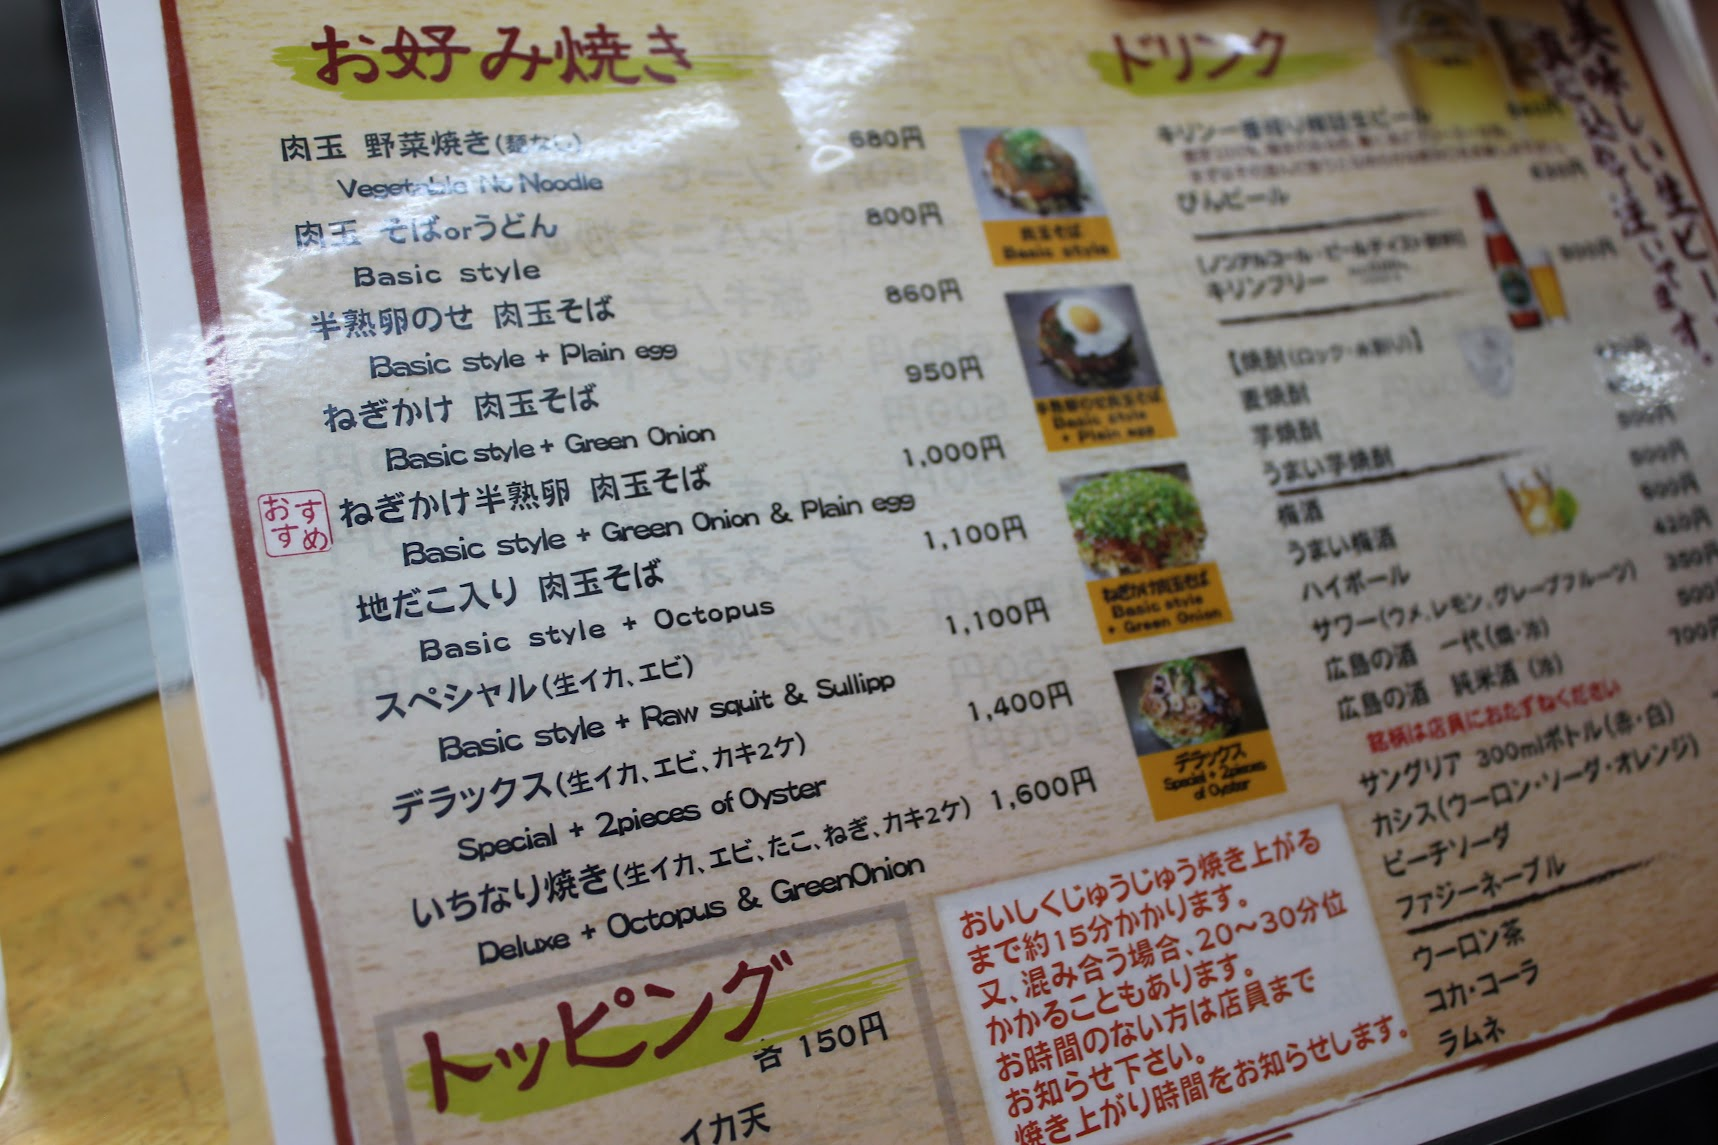 お好み焼き
肉玉 野菜焼き(麺なし) 680円
Vegetable No Noodle
肉玉 そばorうどん 800円
Basic style
半熟卵のせ 肉玉そば 860円
Basic style + Plain egg
ねぎかけ 肉玉そば 950円
Basic style + Green Onion
おすすめ
ねぎかけ半熟卵 肉玉そば 1,000円
Basic style + Green Onion & Plain egg
地だこ入り 肉玉そば 1,100円
Basic style + Octopus
スペシャル(生イカ、エビ) 1,100円
Basic style + Raw squit & Sullipp
デラックス(生イカ、エビ、カキ2ケ) 1,400円
Special + 2pieces of Oyster
いちなり焼き(生イカ、エビ、たこ、ねぎ、カキ2ケ) 1,600円
Deluxe + Octopus & GreenOnion
肉玉そば
Basic style
半熟卵のせ肉玉そば
Basic style
+ Plain egg
ねぎかけ肉玉そば
Basic style
+ Green Onion
デラックス
Special + 2pieces
of Oyster
トッピング
各 150円
イカ天
おいしくじゅうじゅう焼き上がる
まで約15分かかります。
又、混み合う場合、20〜30分位
かかることもあります。
お時間のない方は店員まで
お知らせ下さい。
焼き上がり時間をお知らせします。
ドリンク
キリン一番搾り
生ビール
びんビール
[ノンアルコール・ビールテイスト飲料]
キリンフリー
【焼酎(ロック・水割り)】
麦焼酎
芋焼酎
うまい芋焼酎
梅酒
うまい梅酒
ハイボール
サワー(ウメ、レモン、グレープフルーツ)
広島の酒 一代(燗・冷)
広島の酒 純米酒(冷)
銘柄は店員におたずねください
サングリア 300mlボトル(赤・白)
カシス(ウーロン・ソーダ・オレンジ)
ピーチソーダ
ファジーネーブル
ウーロン茶
コカ・コーラ
ラムネ
500円
600円
420円
350円
700円
美味しい生ビー
真心込めて注いでます。